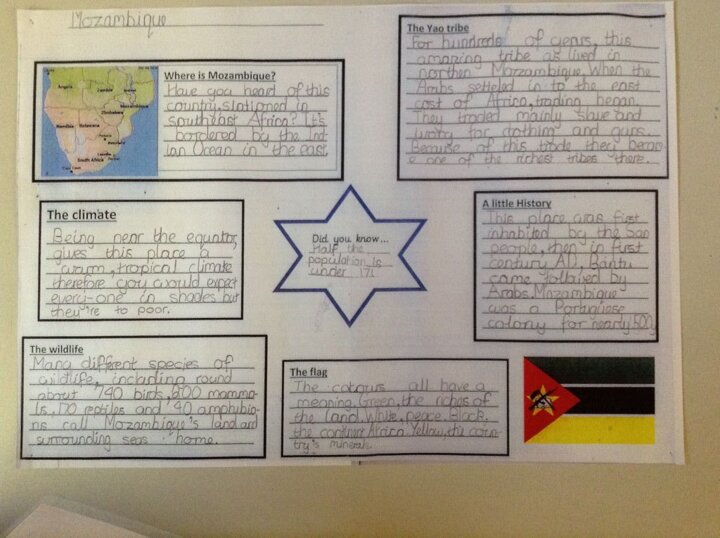 Mozambique
Where is Mozambique?
Have you heart of this
country, stationed in
southeast Africa? It's
bordered by the Ind-
ian Ocean in the east.
The Yao tribe
For hundreds of years, this
amazing tribe as lived in
northen Mozzambique. When the
Arabs settled in to the east
cost of Africa, trading began.
They traded mainly slave and
ivory for clothim and guns.
Because of this trade they becam-
e one of the richest tribes there.
The climate
Being near the equator,
gives this place a
warm, tropical climate
therefore you would expect
every-one in shades but
they're to poor.
Did you know...
Half the
population is
under 17!
A little History
This place was first
inhabited by the San
people, then in first
century AD, Bantu
came followed by
Arabs. Mozambique
was a Portuguese
colony for nearly 500y
The wildlife
Many different species of
wildlife, including round
about 740 birds, 200 mamma-
ls, 170 reptiles and 40 amphybio-
ns call Mozambique's land and
surrounding seas home.
The flag
The colours all have a
meaning. Green, the riches of
the land. White, peace. Black,
the continent Africa. Yellow, the coun-
try's minerals.
Angola
Zambia
Mozambique
Zimbabwe
Namibia Botswana
South Africa